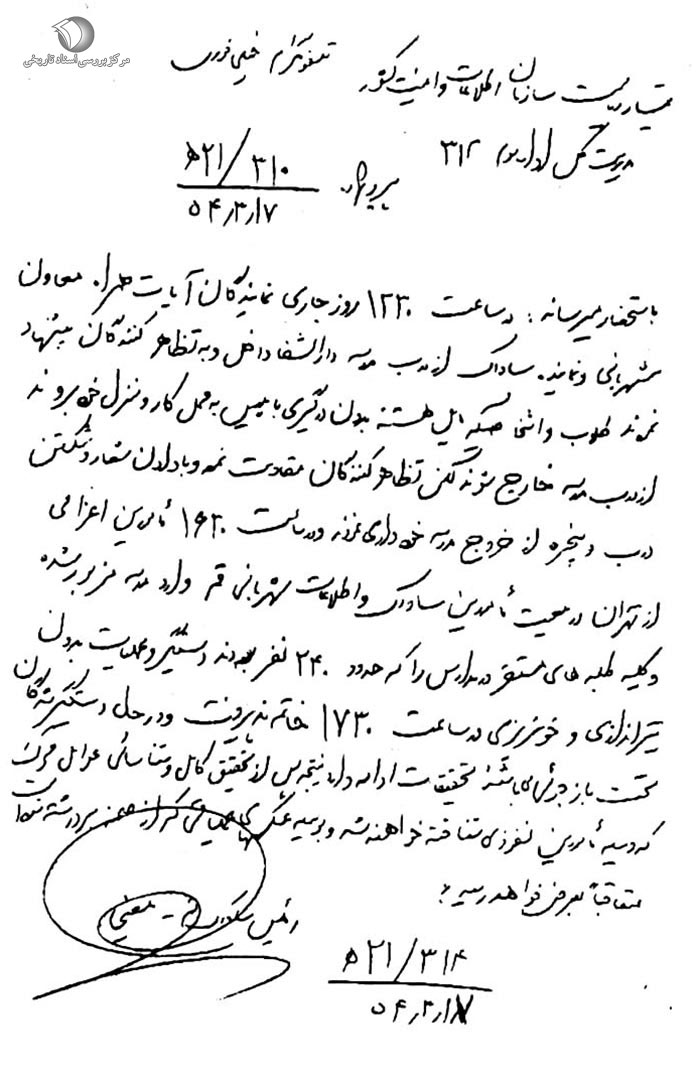 مرکز بررسی اسناد تاریخی
تلفنگرام خیلی فوری
تیمسار ریاست سازمان اطلاعات و امنیت کشور
مدیریت کل اداره سوم ۳۱۲
پیرو
۲۱/۳۱۰ه
۵۴٫۳٫۱۷
باستحضار میرساند: در ساعت ۱۲۳۰ روز جاری نمایندگان آیات معاون
شهربانی و نماینده ساواک از درب مدرسه دارالشفا داخل و به تظاهر کنندگان پیشنهاد
نمودند طلاب و اشخاصیکه مایل هستند بدون درگیری با پلیس به محل کار و منزل خود بروند
از درب مدرسه خارج شوند لکن تظاهر کنندگان مقاومت نموده و با دادن شعار و شکستن
درب و پنجره از خروج مدرسه خودداری نمودند و در ساعت ۱۶۳۰ مأمورین اعزامی
از تهران در معیت مأمورین ساواک و اطلاعات شهربانی قم وارد مدرسه مزبور شده
و کلیه طلبه های مستقر در مدارس را که حدود ۲۴۰ نفر بودند دستگیر و عملیات بدون
تیراندازی و خونریزی در ساعت ۱۷۳۰ خاتمه پذیرفت و در حال دستگیرشدگان
تحت بازجوئی می باشند تحقیقات ادامه دارد نتیجه پس از تحقیق کامل و شناسائی عوامل محرک
که وسیله مأمورین نفوذی شناخته خواهند شد و بوسیله عکسهای که از صحنه برداشته شده است
متعاقباً بعرض خواهد رسید.
رئیس ساواک قم - معینی
۲۱/۳۱۴ه
۵۴٫۳٫۱۷